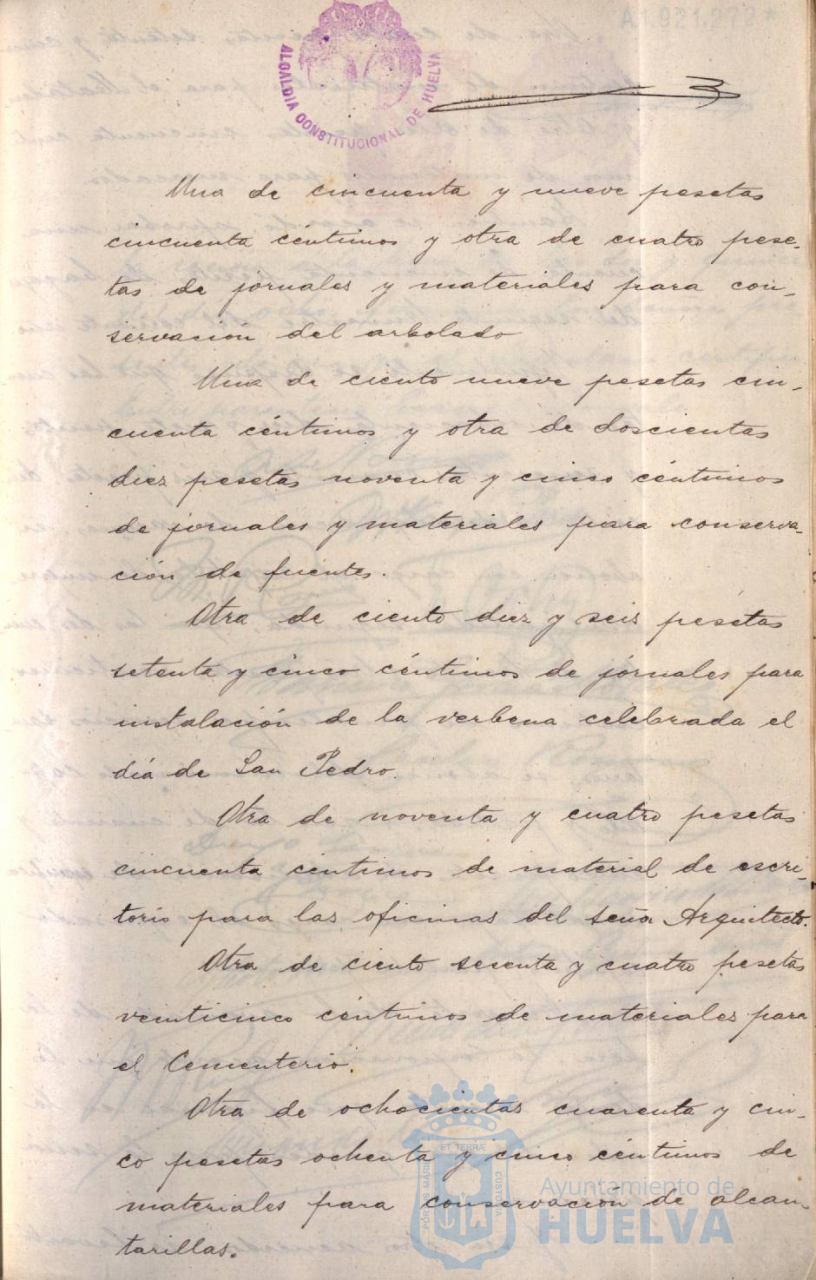 A1.921.272*
ALCALDIA CONSTITUCIONAL DE HUELVA
3
Una de cincuenta y nueve pesetas
cincuenta céntimos y otra de cuatro pese-
tas de jornales y materiales para con-
servación del arbolado
Una de ciento nueve pesetas cin-
cuenta céntimos y otra de doscientas
diez pesetas noventa y cinco céntimos
de jornales y materiales para conserva-
ción de fuentes.
Otra de ciento diez y seis pesetas
setenta y cinco céntimos de jornales para
instalación de la verbena celebrada el
día de San Pedro.
Otra de noventa y cuatro pesetas
cincuenta centimos de material de escri-
torio para las oficinas del señor Arquitecto.
Otra de ciento sesenta y cuatro pesetas
veinticinco céntimos de materiales para
el Cementerio.
Otra de ochocientas cuarenta y cin-
co pesetas ochenta y cinco céntimos de
materiales para conservación de alcan-
tarillas.
Ayuntamiento de
HUELVA